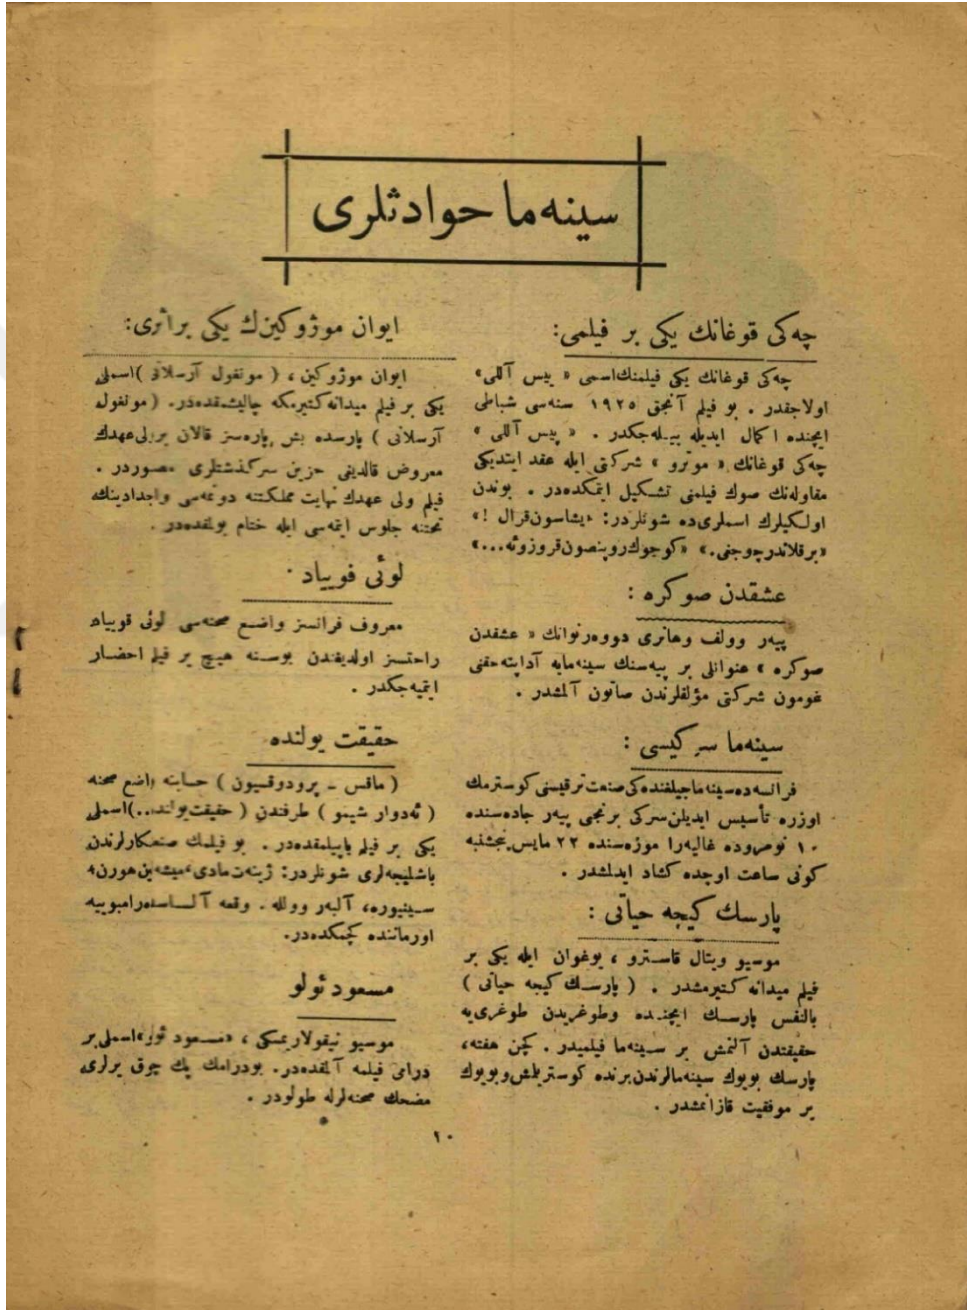 سینه‌ما حوادثلری
چه‌كی قوغانك یكی بر فیلمی:
چه‌كی قوغانك یكی فیلمنك اسمی « پیس آللی»
اولاجقدر . بو فیلم آنجق ١٩٢٥ سنه‌سی شباطی
ایچنده اكمال ایدیله بیله‌جكدر . « پیس آللی »
چه‌كی قوغانك « موترو » شركتی ایله عقد ایتدیكی
مقاوله‌نك صوك فیلمنی تشكیل ایتمكده‌در . بوندن
اولكیلرك اسملری‌ده شونلردر: «یشاسون قرال !»
«بر قلاندر چوجنی.» «كوچوك روبنصون قروزوئه...»
عشقدن صوكره :
پیه‌ر وولف وهانری دووه‌رنوانك « عشقدن
صوكره » عنوانلی بر پیه‌سنك سینه‌مایه آداپته حقنی
غومون شركتی مؤلفلرندن صاتون آلمشدر .
سینه‌ما سركیسی :
فرانسه‌ده سینه‌ماجیلغنده‌كی صنعت ترقیسنی كوسترمك
اوزره تأسیس ایدیلن سركی برنجی پیه‌ر جاده‌سنده
١٠ نومروده غالیه‌را موزه‌سنده ٢٢ مایس پنجشنبه
كونی ساعت اوچده كشاد ایدلمشدر .
پارسك كیجه حیاتی :
موسیو ویتال قاسترو ، بوغوان ایله یكی بر
فیلم میدانه كتیرمشدر . ( پارسك كیجه حیاتی )
بالنفس پارسك ایچنده وطوغریدن طوغری‌یه
حقیقتدن آلنمش بر سینه‌ما فیلمیدر . كچن هفته،
پارسك بویوك سینه‌مالرندن برنده كوستریلمش وبویوك
بر موفقیت قازانمشدر .
ایوان موژوكینك یكی بر اثری:
ایوان موژوكین ، ( مونغول آرسلانی ) اسملی
یكی بر فیلم میدانه كتیرمكه چالیشمقده‌در. ( مونغول
آرسلانی ) پارسده بش پاره‌سز قالان بر ولی عهدك
معروض قالدیغی حزین سركذشتلری مصوردر .
فیلم ولی عهدك نهایت مملكتنه دونمه‌سی واجدادینك
تختنه جلوس ایتمه‌سی ایله ختام بولمقده‌در .
لوئی فوییاد .
معروف فرانسز واضع صحنه‌سی لوئی فوییاد
راحتسز اولدیغندن بوسنه هیچ بر فیلم احضار
ایتمیه‌جكدر .
حقیقت یولنده
( ماقس ـ پرودوقسیون ) حسابنه واضع صحنه
( ئه‌دوار شیمو ) طرفندن ( حقیقت یولنده..) اسملی
یكی بر فیلم یاپیلمقده‌در . بو فیلمك صنعتكارلرندن
باشلیجه‌لری شونلردر: ژینه‌ت مادی، میشه‌ین هورن،
سینیوره، آلبه‌ر وولله . وقعه آلساسده رامبوییه
اورماننده كچمكده‌در.
مسعود ئولو
موسیو نیقولا ریمسكی ، «مسعود ئولو» اسملی بر
درامی فیلمه آلمقده‌در. بودرامك پك چوق یرلری
مضحك صحنه‌لرله طولودر .
١٠